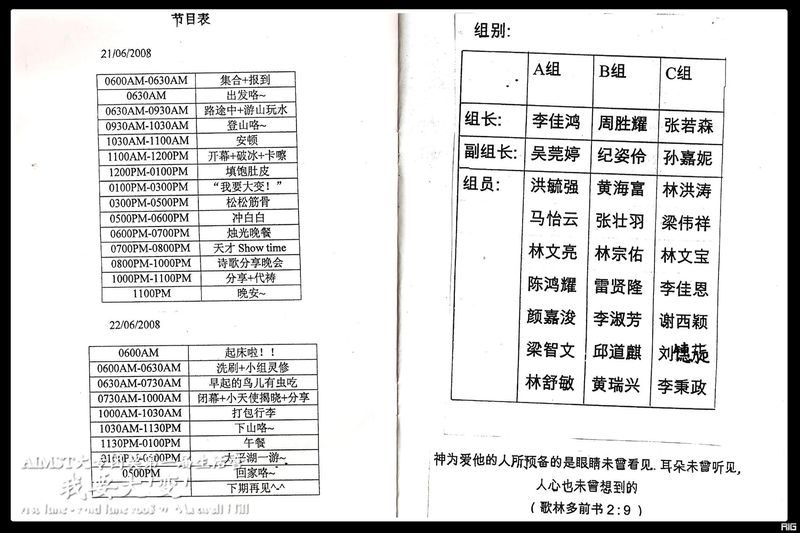 节目表
21/06/2008
0600AM-0630AM 集合+报到
0630AM 出发咯~
0630AM-0930AM 路途中+游山玩水
0930AM-1030AM 登山咯~
1030AM-1100AM 安顿
1100AM-1200PM 开幕+破冰+卡嚓
1200PM-0100PM 填饱肚皮
0100PM-0300PM “我要大变！”
0300PM-0500PM 松松筋骨
0500PM-0600PM 冲白白
0600PM-0700PM 烛光晚餐
0700PM-0800PM 天才 Show time
0800PM-1000PM 诗歌分享晚会
1000PM-1100PM 分享+代祷
1100PM 晚安~
22/06/2008
0600AM 起床啦！！
0600AM-0630AM 洗刷+小组灵修
0630AM-0730AM 早起的鸟儿有虫吃
0730AM-1000AM 闭幕+小天使揭晓+分享
1000AM-1030AM 打包行李
1030AM-1130PM 下山咯~
1130PM-0100PM 午餐
0100PM-0500PM 太平湖一游~
0500PM 回家咯~
下期再见^-^
AIMST大
我要大变!
组别:
A组 B组 C组
组长: 李佳鸿 周胜耀 张若森
副组长: 吴莞婷 纪姿伶 孙嘉妮
组员: 洪毓强 黄海富 林洪涛
马怡云 张壮羽 梁伟祥
林文亮 林宗佑 林文宝
陈鸿耀 雷贤隆 李佳恩
颜嘉浚 李淑芳 谢西颖
梁智文 邱道麒 刘
林舒敏 黄瑞兴 李秉政
神为爱他的人所预备的是眼睛未曾看见.耳朵未曾听见,
人心也未曾想到的
(歌林多前书2:9)
RIG